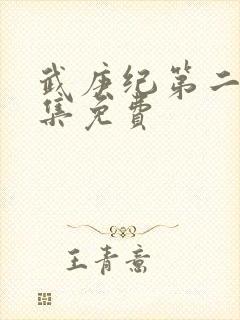 武庚纪第二
集免费
王青意